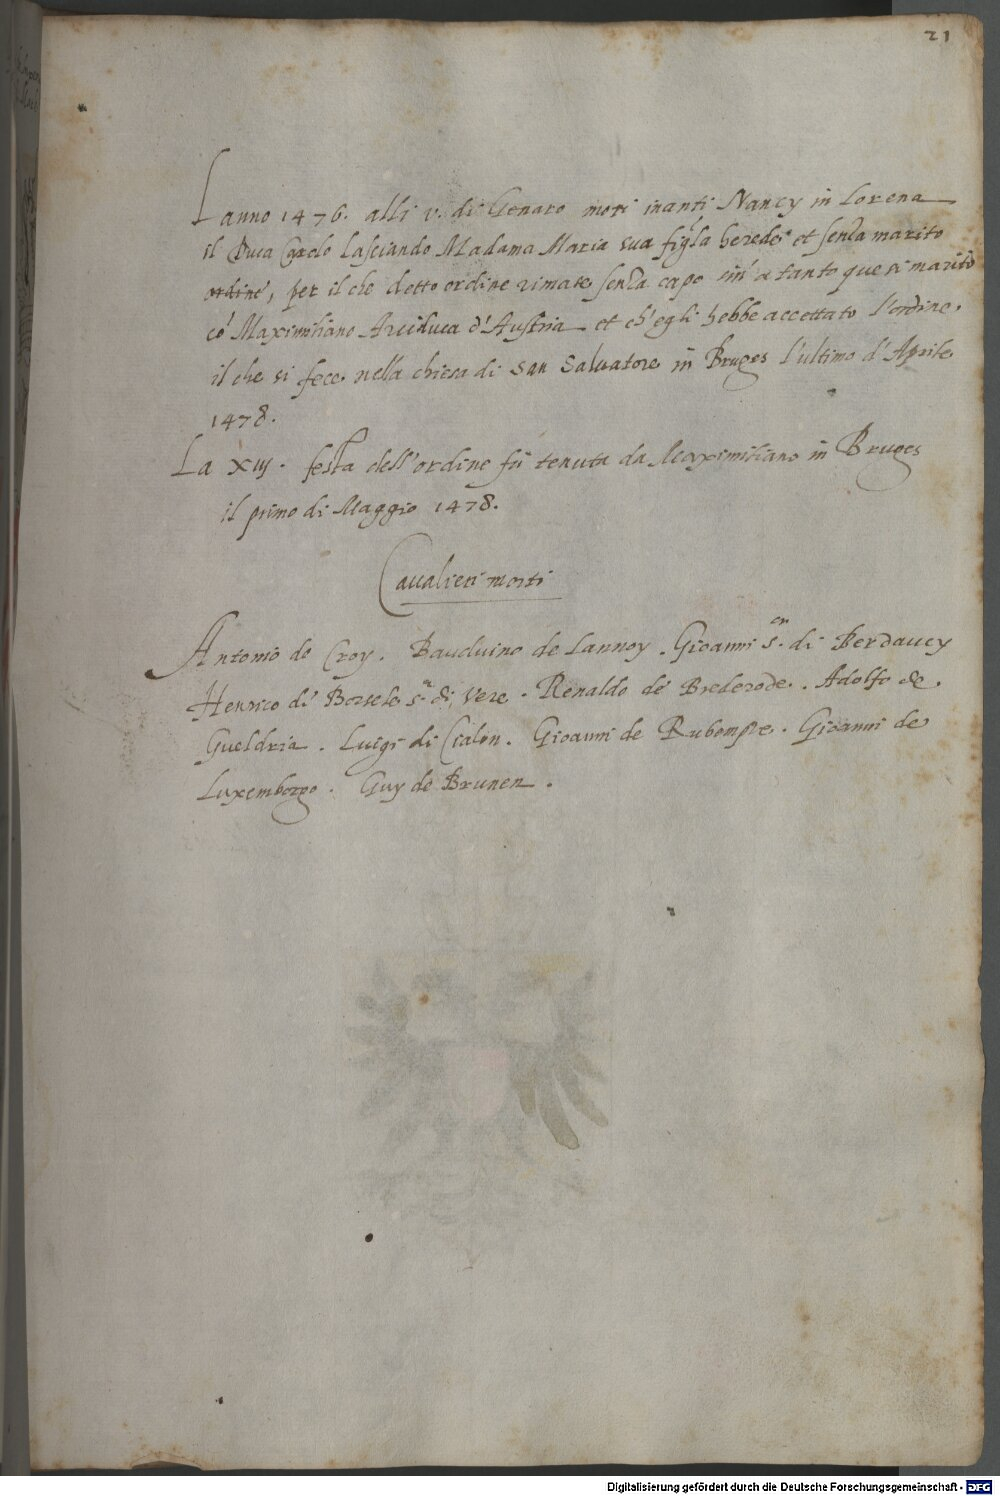 21
L'anno 1476. alli v. di Genaro mori inanti Nancy in Lorena
il Duca Carolo lasciando Madama Maria sua figla herede et senza marito
ordine, per il che detto ordine rimase senza capo in a tanto que si marito
co Maximiliano Arciduca d'Austria et ch'egli hebbe accettato l'ordine,
il che si fece nella chiesa di san Salvatore in Bruges l'ultimo d'Aprile
1478.
La xiij. festa dell'ordine foi tenuta da Maximiliano in Bruges
il primo di Maggio 1478.
Cavalieri morti
Antonio de Croy. Bauduino de Lannoy. Gioanni S.or di Berdaucy
Henrico di Borsele S.r di Vere. Renaldo de Brederode. Adolfo de
Gueldria. Luigi di Cialon. Gioanni de Rubempre. Gioanni de
Luxemborgo. Guy de Brunen.
Digitalisierung gefördert durch die Deutsche Forschungsgemeinschaft - DFG